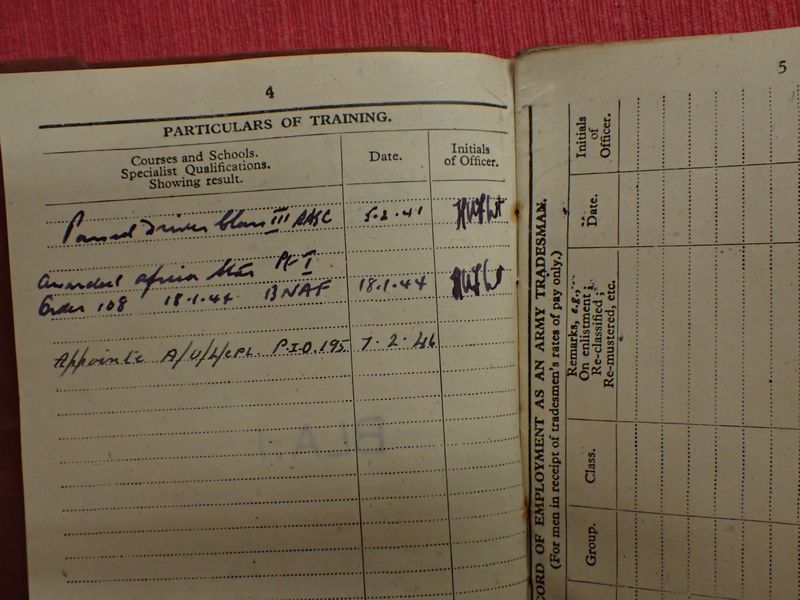 4
PARTICULARS OF TRAINING.
Courses and Schools.
Specialist Qualifications.
Showing result.
Date.
Initials
of Officer.
Passed Driver Class III RASC 5.2.41
Awarded Africa Star Pt I
Order 108 18.1.44 BNAF 18.1.44
Appointe A/U/L/CPL. P.I.O.195 7.2.46
5
CORD OF EMPLOYMENT AS AN ARMY TRADESMAN.
(For men in receipt of tradesmen's rates of pay only.)
Initials
of
Officer.
Date.
Remarks, e.g., :—
On enlistment ;
Re-classified ;
Re-mustered, etc.
Class.
Group.